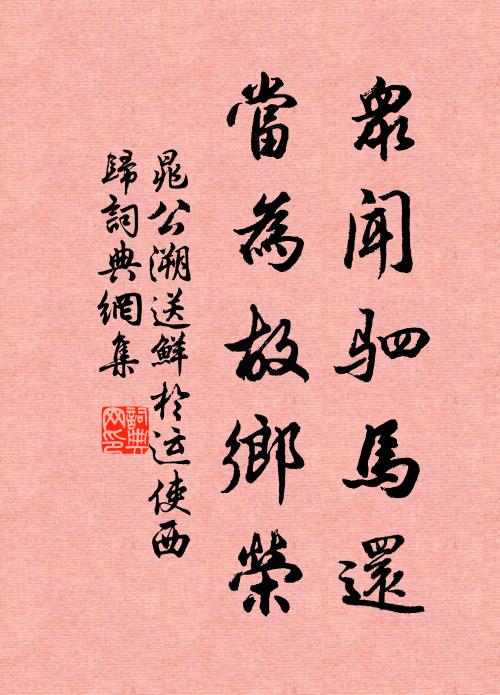 衆聞驷馬還
當為故鄉榮
晁公溯送鮮於运使西
歸詞典網集
詞典
网印